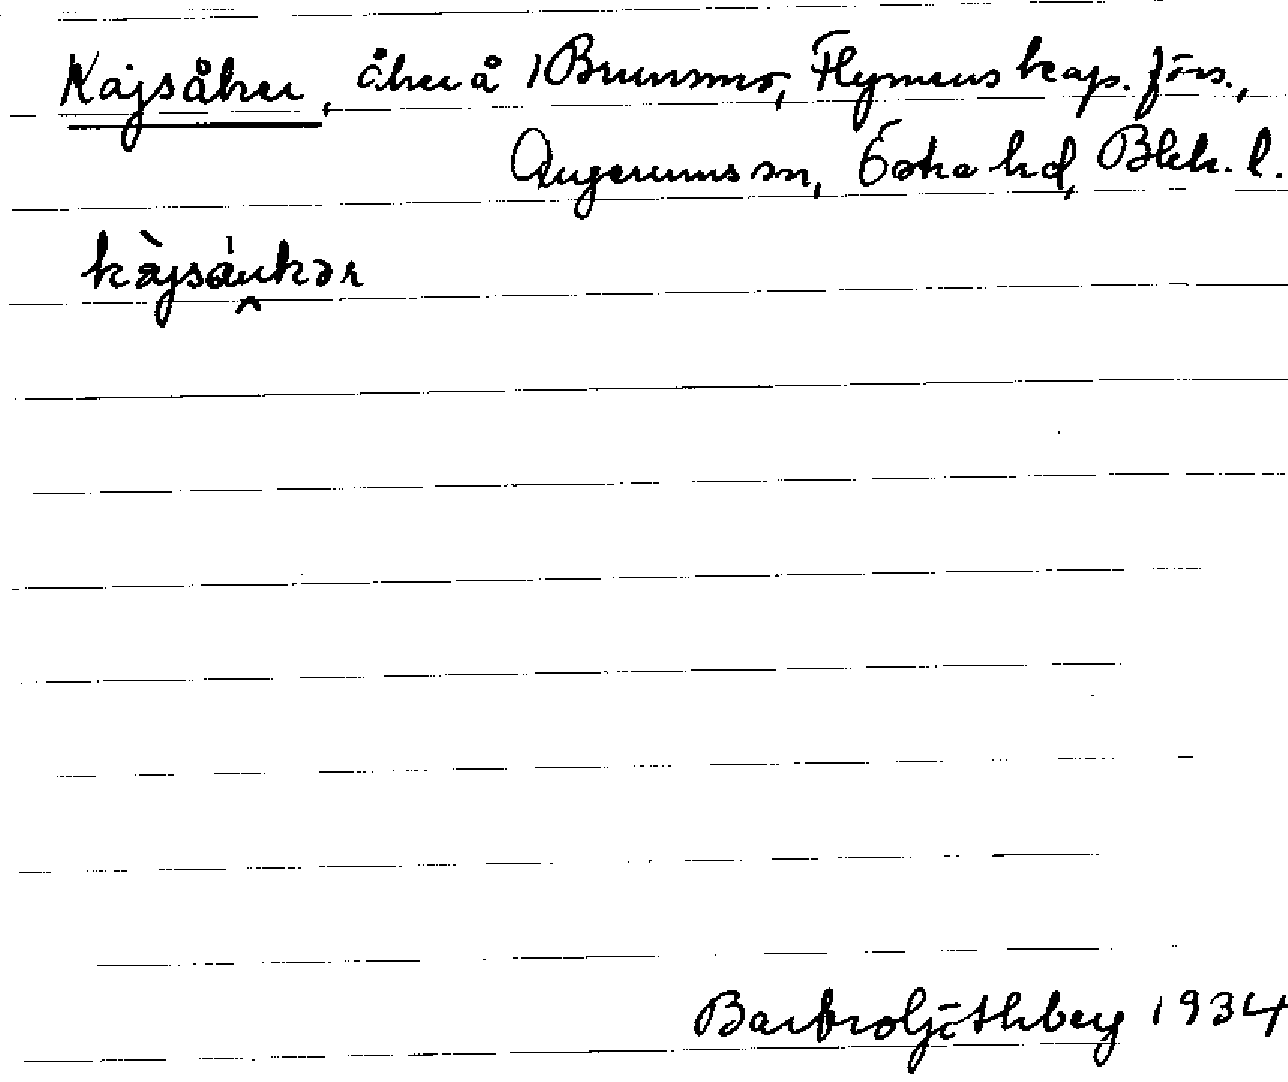 Kajsåker, åker å 1 Brunsmo, Flymens kap. förs.,
Augerums sn, Östra hd, Blek. l.
Barbro Göthberg 1934